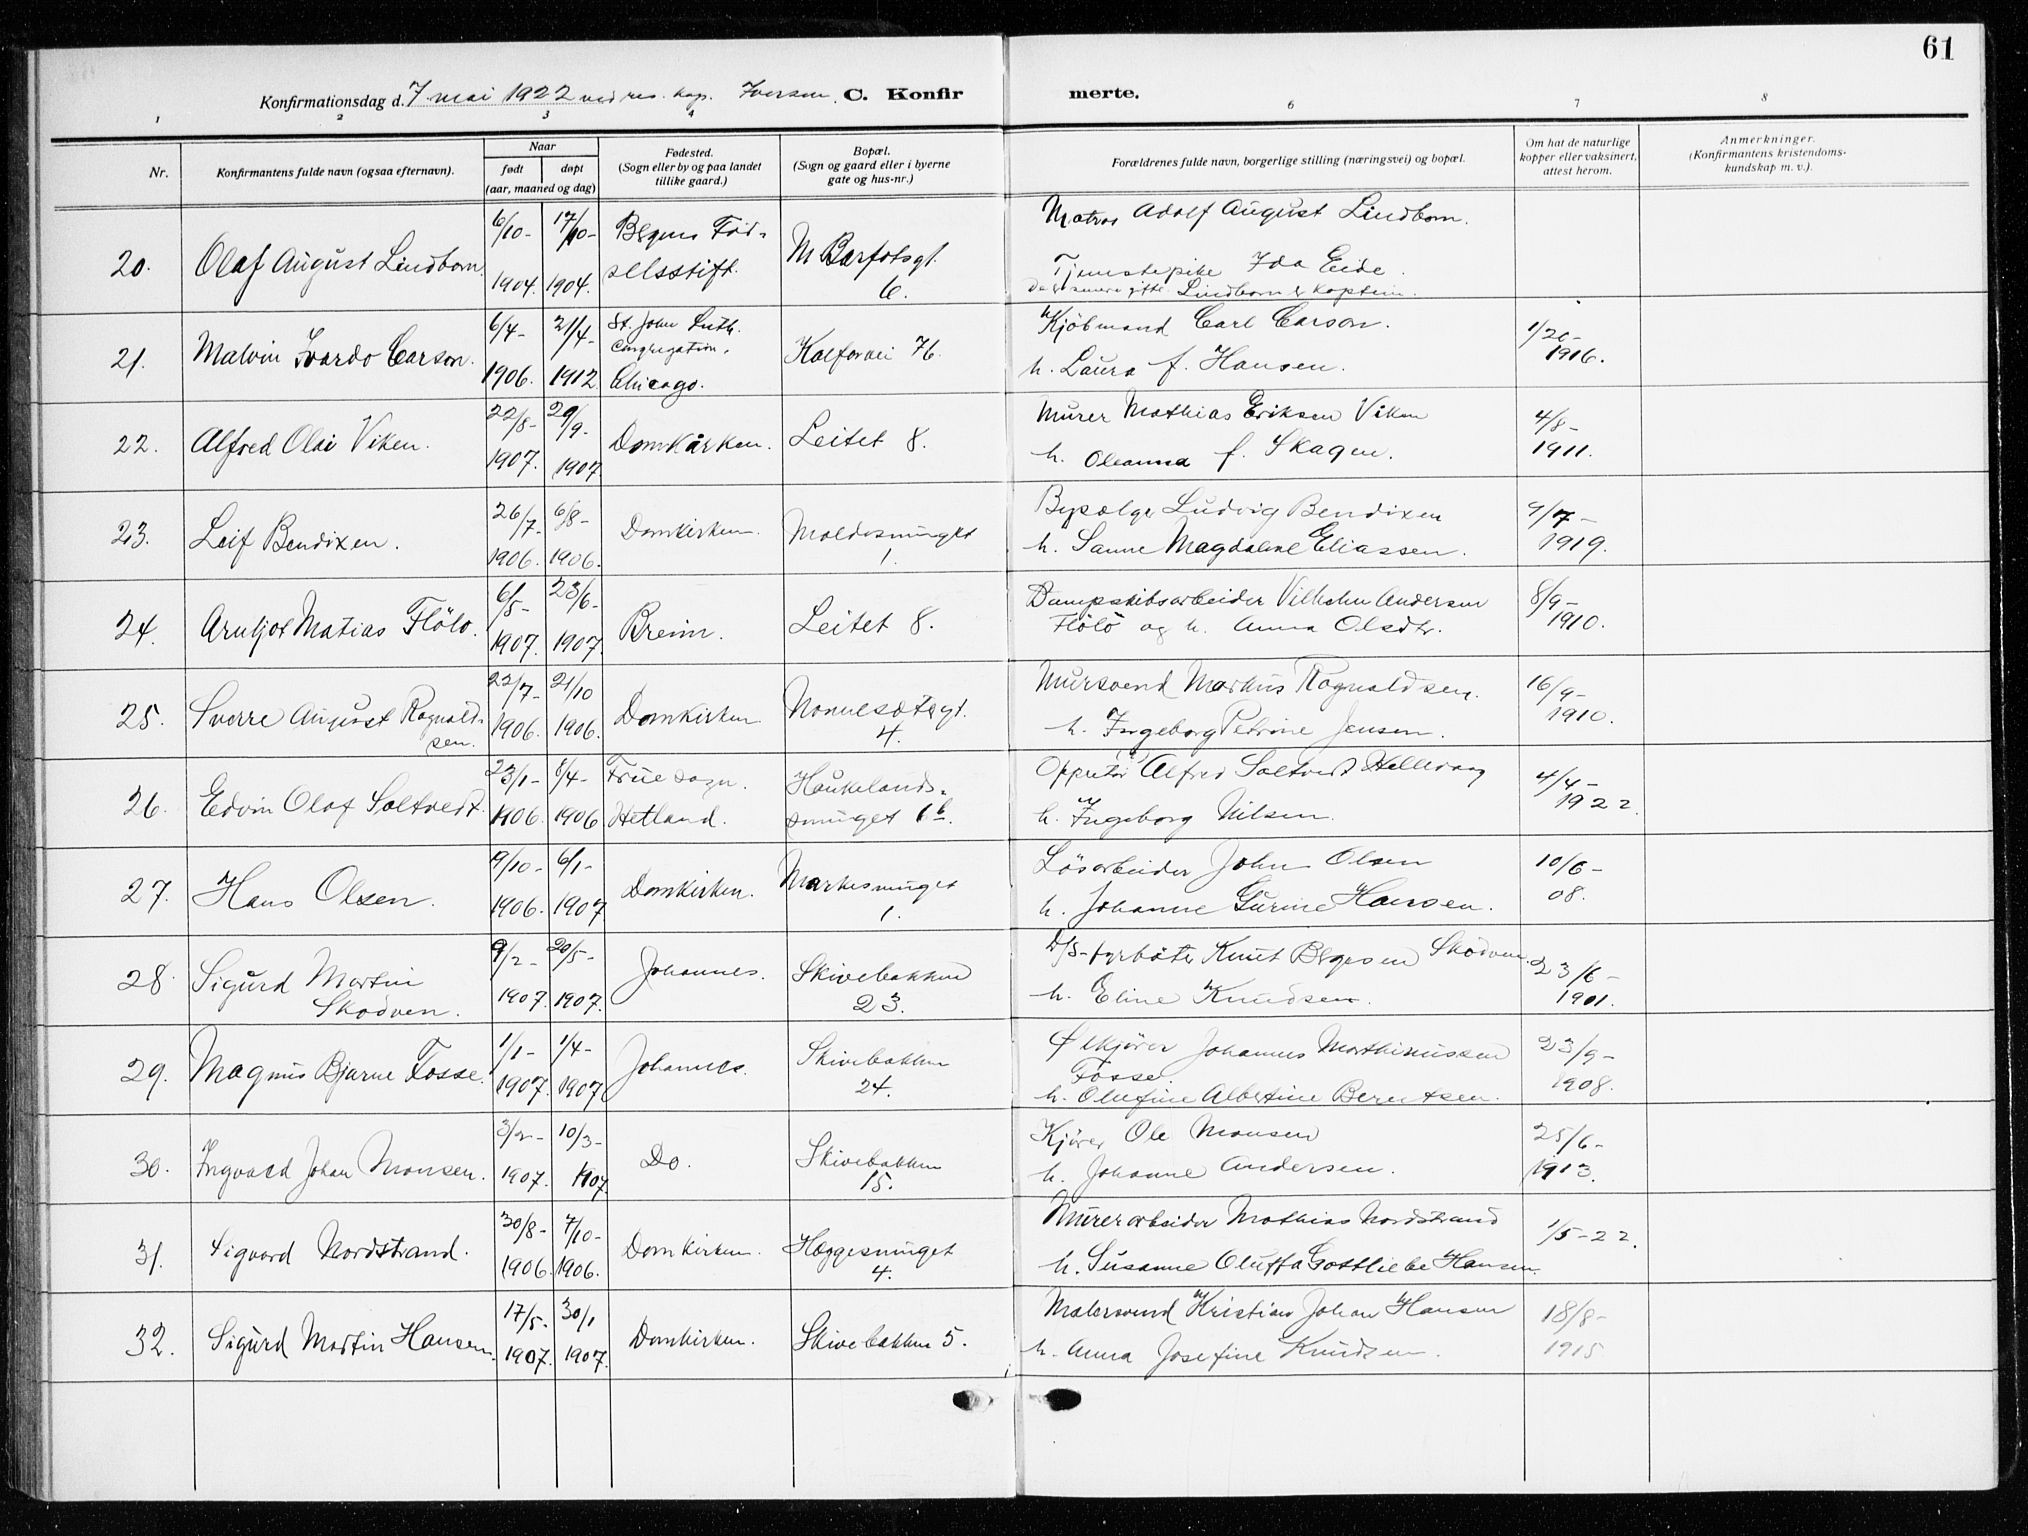 61
Konfirmationsdag d. 7 mai 1922 ved res. kap. Iversen. C. Konfir merte.
1 2 3 4 6 7 8
Nr.
Konfirmantens fulde navn (ogsaa efternavn).
Naar
født døpt
(aar, maaned og dag)
Fødested.
(Sogn eller by og paa landet
tillike gaard.)
Bopæl.
(Sogn og gaard eller i byerne
gate og hus-nr.)
Forældrenes fulde navn, borgerlige stilling (næringsvei) og bopæl.
Om hat de naturlige
kopper eller vaksinert,
attest herom.
Anmerkninger.
(Konfirmantens kristendoms-
kundskap m. v.).
20. Olaf August Lindbom. 6/10- 1904. 17/10- 1904. Bergens Fød-
selsstift. M Barfotsgt.
6.
Matros Adolf August Lindbom.
Tjenestepike Ida Eide.
21. Malvin Ivardo Carson. 6/4- 1906. 21/4- 1912 St. John Luth.
Congregation,
Chicago. Kalfarvei 76.
Kjöbmand Carl Carson.
h. Laura f. Hansen.
1/20-
1916.
22. Alfred Olai Viken. 22/8- 1907. 29/9- 1907 Domkirken. Leitet 8.
Murer Mathias Eriksen Viken
h. Oleanna f. Skagen.
4/8-
1911.
23. Leif Bendixen. 26/7- 1906. 6/8- 1906. Domkirken.
1.
Ludvig Bendixen
h. Sanne Magdalene Eliassen.
9/7-
1919.
24. Arnljot Matias Flölo. 6/5- 1907. 23/6- 1907 Breim. Leitet 8.
Dampskibsarbeider Vilhelm Andersen
Flölö og h. Anna Olsdtr.
8/9-
1910.
25. Sverre August Ragnald-
sen. 22/7- 1906. 21/10 1906. Domkirken Nonnesætergt.
4.
Mursvend Markus Ragnaldsen.
h. Ingeborg Petrine Jensen.
16/9-
1910.
26. Edvin Olaf Saltvedt. 23/1- 1906. 8/4- 1906 Frue sogn.
Hetland. Haukelands-
smuget 6b.
Alfred Saltvedt Hellevaag
h. Ingeborg Nilsen.
4/4-
1922.
27. Hans Olsen. 9/10- 1906. 6/1- 1907 Domkirken. Markesmuget
1.
Lösarbeider John Olsen
h. Johanne Gurine Hansen.
10/6-
08.
28. Sigurd Martin
Skodven. 9/2- 1907. 20/5- 1907. Johannes. Skivebakken
23.
D/S-fyrböter Knut Børgesen Skodven.
h. Eline Knudsen.
23/6-
1901.
29. Magnus Bjarne Fosse. 1/1- 1907. 1/4- 1907 Johannes. Skivebakken
24.
Ølkjörer Johannes Mathinussen
Fosse.
h. Olufine Albertine Berentsen.
23/9-
1908.
30. Ingvald Johan Monsen. 3/2- 1907. 10/3- 1907. Do. Skivebakken
15.
Kjörer Ole Monsen
h. Johanne Andersen.
25/6-
1913.
31. Sigvard Nordstrand. 30/8- 1906. 7/10- 1906. Domkirken. Heggesmuget
4.
Murerarbeider Mathias Nordstrand
h. Susanne Oluffa Gottliebe Hansen.
1/5-22.
32. Sigurd Martin Hansen. 17/5- 1907. 30/1 1907. Domkirken. Skivebakken 5.
Malersvend Kristian Johan Hansen
h. Anna Josefine Knudsen.
18/8-
1915